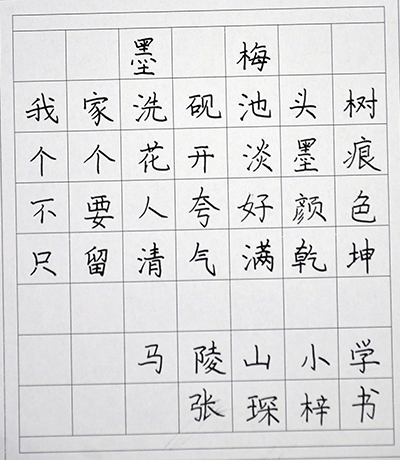 墨梅
我家洗砚池头树
个个花开淡墨痕
不要人夸好颜色
只留清气满乾坤
马陵山小学
张琛梓书